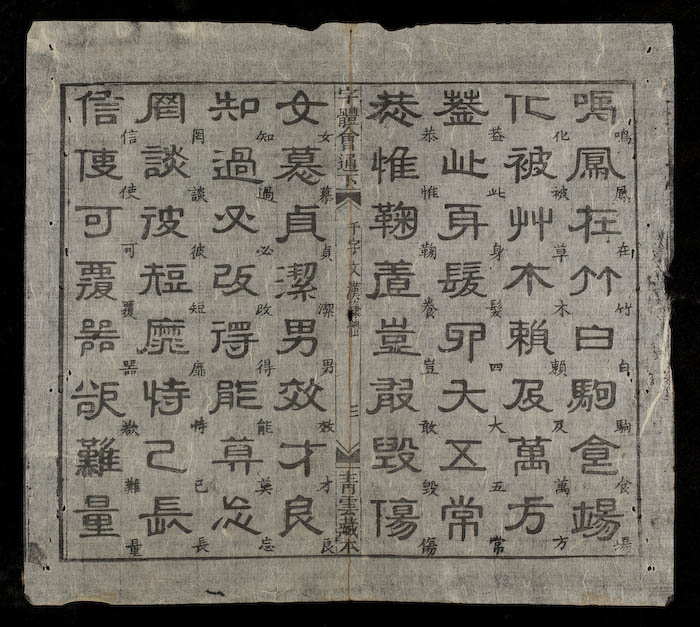 鳴鳳在竹白駒食場
鳴鳳在竹白駒食場
化被艸木賴及萬方
化被草木賴及萬方
蓋此身髮四大五常
蓋此身髮四大五常
恭惟鞠養豈敢毀傷
恭惟鞠養豈敢毀傷
字體會通下
千字文漢隸體
三
藏本
女慕貞潔男效才良
女慕貞潔男效才良
知過必改得能莫忘
知過必改得能莫忘
罔談彼短靡恃己長
罔談彼短靡恃己長
信使可覆器欲難量
信使可覆器欲難量